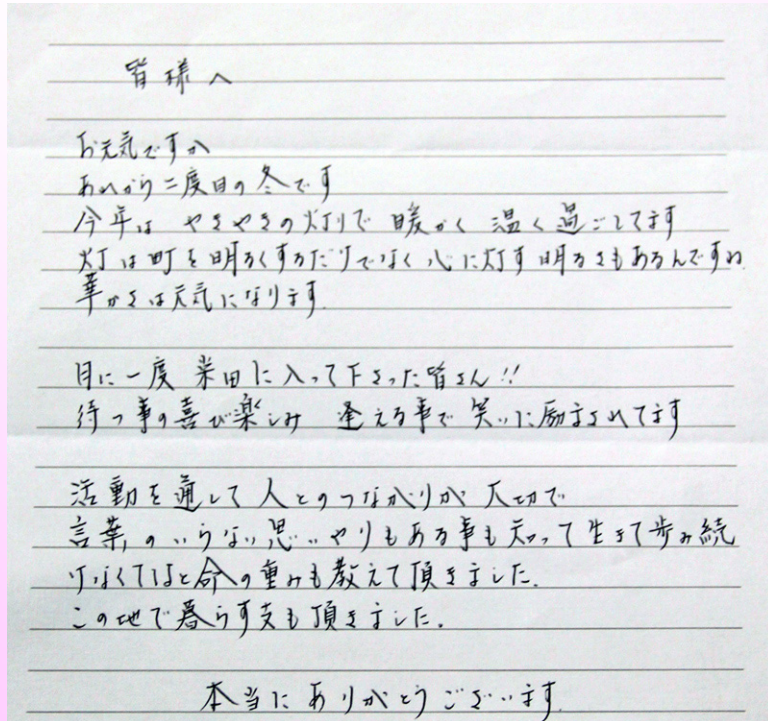 皆様へ
お元気ですか
あれから二度目の冬です
今年は やきやきの灯りで 暖かく 温く過ごしてます
灯は町を明るくするだけでなく心に灯す明るさもあるんですね
華かさは元気になります.
月に一度 米田に入って下さった皆さん!!
待つ事の喜び楽しみ 逢える事で笑いに励まされてます
活動を通して人とのつながりが大切で
言葉のいらない思いやりもある事も知って生きて歩み続
けなくてはと命の重みも教えて頂きました.
この地で暮らす支も頂きました.
本当にありがとうございます.